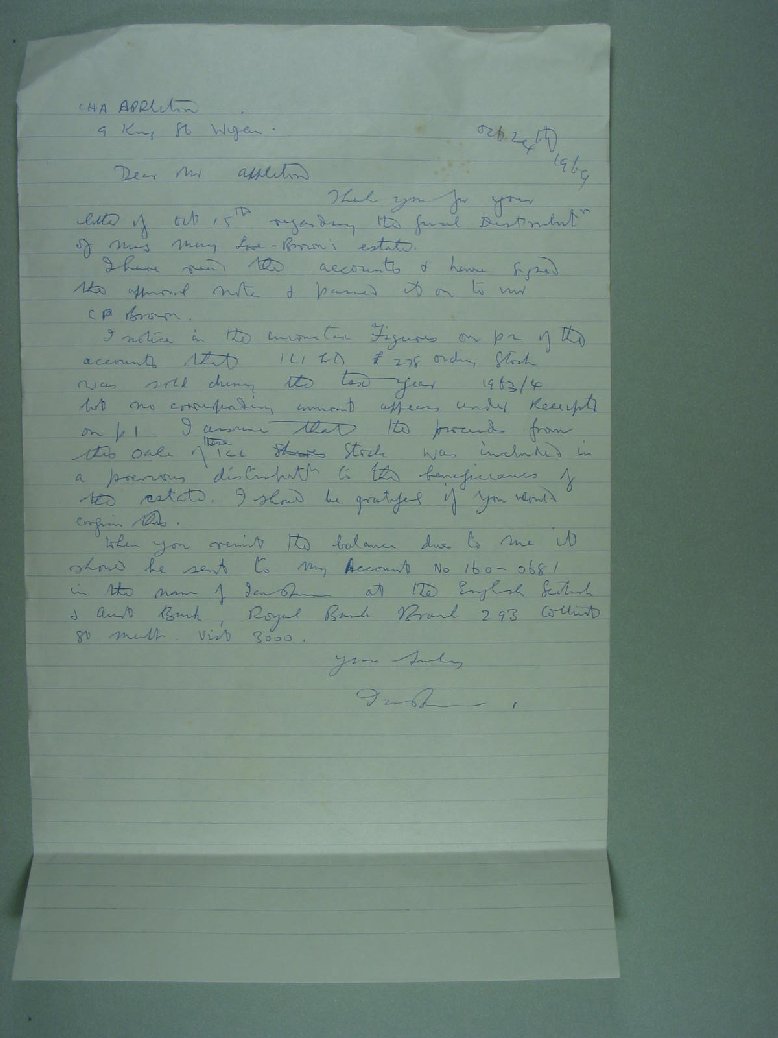 CHA Appleton
9 King St Wigan.
Oct 24th 1969
Dear Mr Appleton
Thank you for your
letter of Oct 15th regarding the final Distributn
of Miss May Love-Brown's estate.
I have read the accounts & have signed
the approval note & passed it on to Mr
CB Brown.
I notice in the income tax Figures on p2 of the
accounts that ICI Ltd £278 ordinary Stock
was sold during the tax year 1963/4
but no corresponding amount appears under Receipts
on p1. I assume that the proceeds from
the sale of the ICI Stock was included in
a previous distributn to the beneficiaries of
the estate. I should be grateful if you would
confirm this.
When you remit the balance due to me it
should be sent to my Account No 160-0681
in the name of at the English Scottish
& Aust Bank, Royal Bank Branch 293 Collins
St Melb. Vict 3000.
Yours